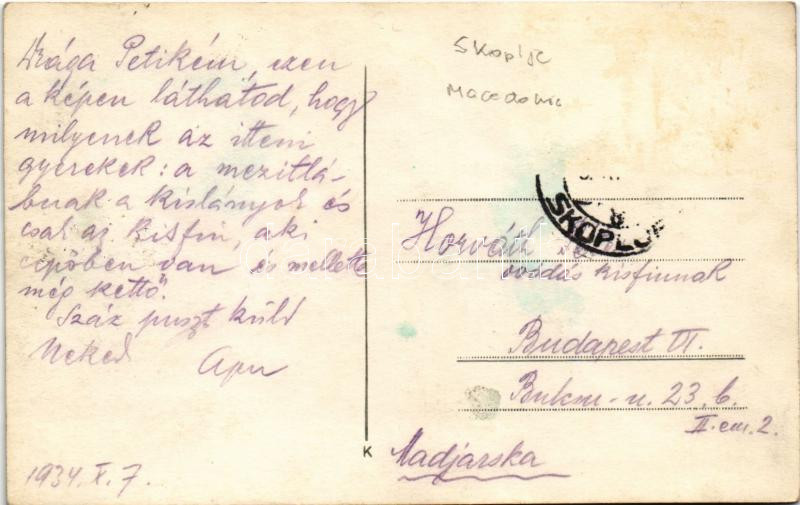 Drága Petikém, ezen
a képen láthatod, hogy
milyenek az itteni
gyerekek: a mezítlá-
bnak a kislányok és
csak az kisfiu, aki
cipőben van és mellette
még kettő.
Száz puszt küld
Neked Apu
1934. X. 7.
K
Skoplje
Macedonia
SKOPLJE
Horváth
óvodás kisfiunak
Budapest VI.
u. 23. b.
II. em. 2.
Madjarska